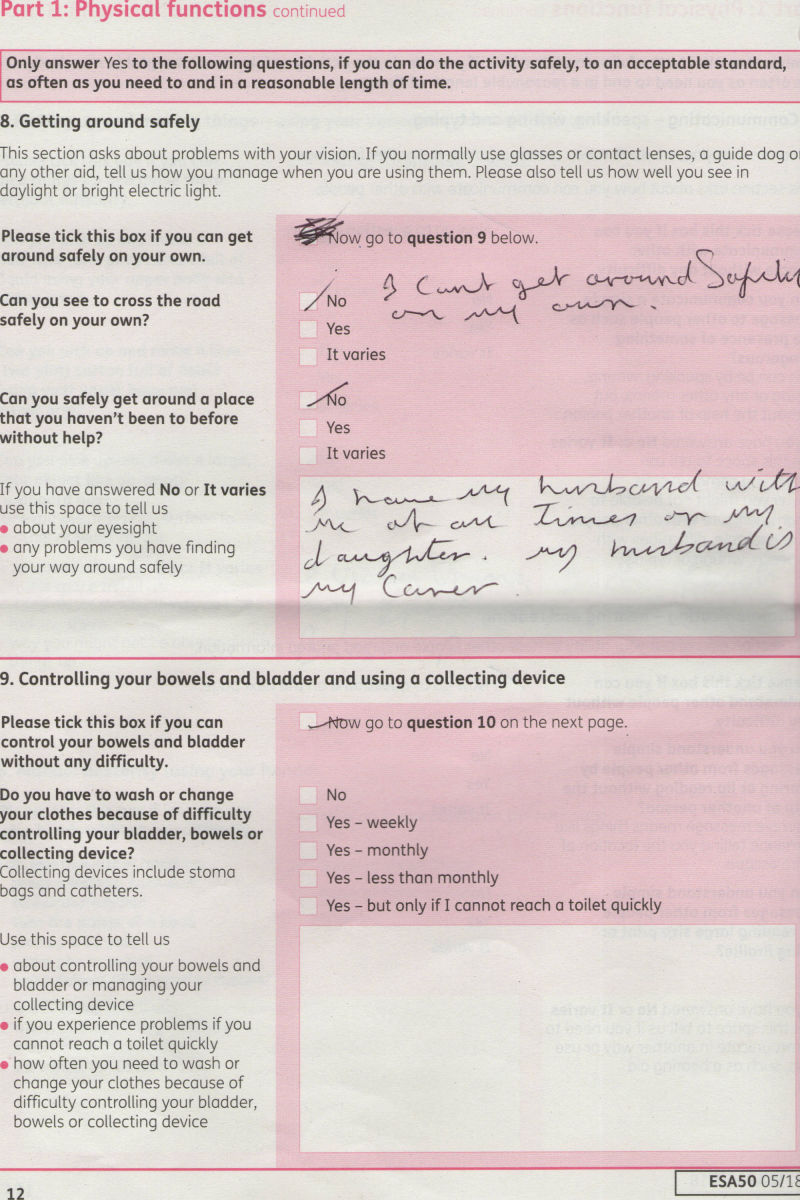 Part 1: Physical functions continued
Only answer Yes to the following questions, if you can do the activity safely, to an acceptable standard,
as often as you need to and in a reasonable length of time.
8. Getting around safely
This section asks about problems with your vision. If you normally use glasses or contact lenses, a guide dog or
any other aid, tell us how you manage when you are using them. Please also tell us how well you see in
daylight or bright electric light.
Please tick this box if you can get
around safely on your own.
Now go to question 9 below.
I Cant get around Safely
on my own.
Can you see to cross the road
safely on your own?
No
Yes
It varies
Can you safely get around a place
that you haven't been to before
without help?
No
Yes
It varies
If you have answered No or It varies
use this space to tell us
• about your eyesight
• any problems you have finding
your way around safely
I have my husband with
me at all Times or my
daughter. my husband is
my Carer.
9. Controlling your bowels and bladder and using a collecting device
Please tick this box if you can
control your bowels and bladder
without any difficulty.
Now go to question 10 on the next page.
Do you have to wash or change
your clothes because of difficulty
controlling your bladder, bowels or
collecting device?
Collecting devices include stoma
bags and catheters.
No
Yes – weekly
Yes – monthly
Yes – less than monthly
Yes – but only if I cannot reach a toilet quickly
Use this space to tell us
• about controlling your bowels and
bladder or managing your
collecting device
• if you experience problems if you
cannot reach a toilet quickly
• how often you need to wash or
change your clothes because of
difficulty controlling your bladder,
bowels or collecting device
12
ESA50 05/18